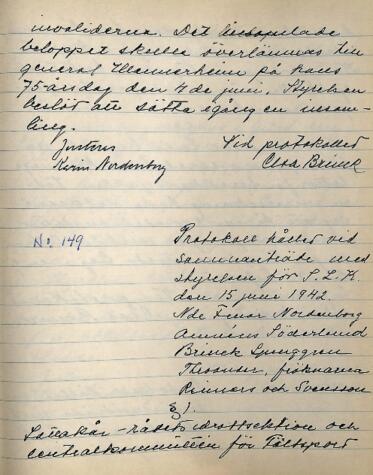 invaliderna. Det insamlade
beloppet skulle överlämnas till
general Mannerheim på hans
75-årsdag den 4 de juni. Styrelsen
beslöt att sätta igång en insam-
ling.
Justeras
Vid protokollet
Karin Nordenborg
Elsa Brinck
No. 149
Protokoll hållet vid
sammanträde med
styrelsen för S.L.K.
den 15 juni 1942.
Nde Fruar Nordenborg
Söderlund
Brinck Ljunggren
fröknarna
Rinners och Svensson
§ 1.
idrottsektion och
centralkommittén för Fältsport